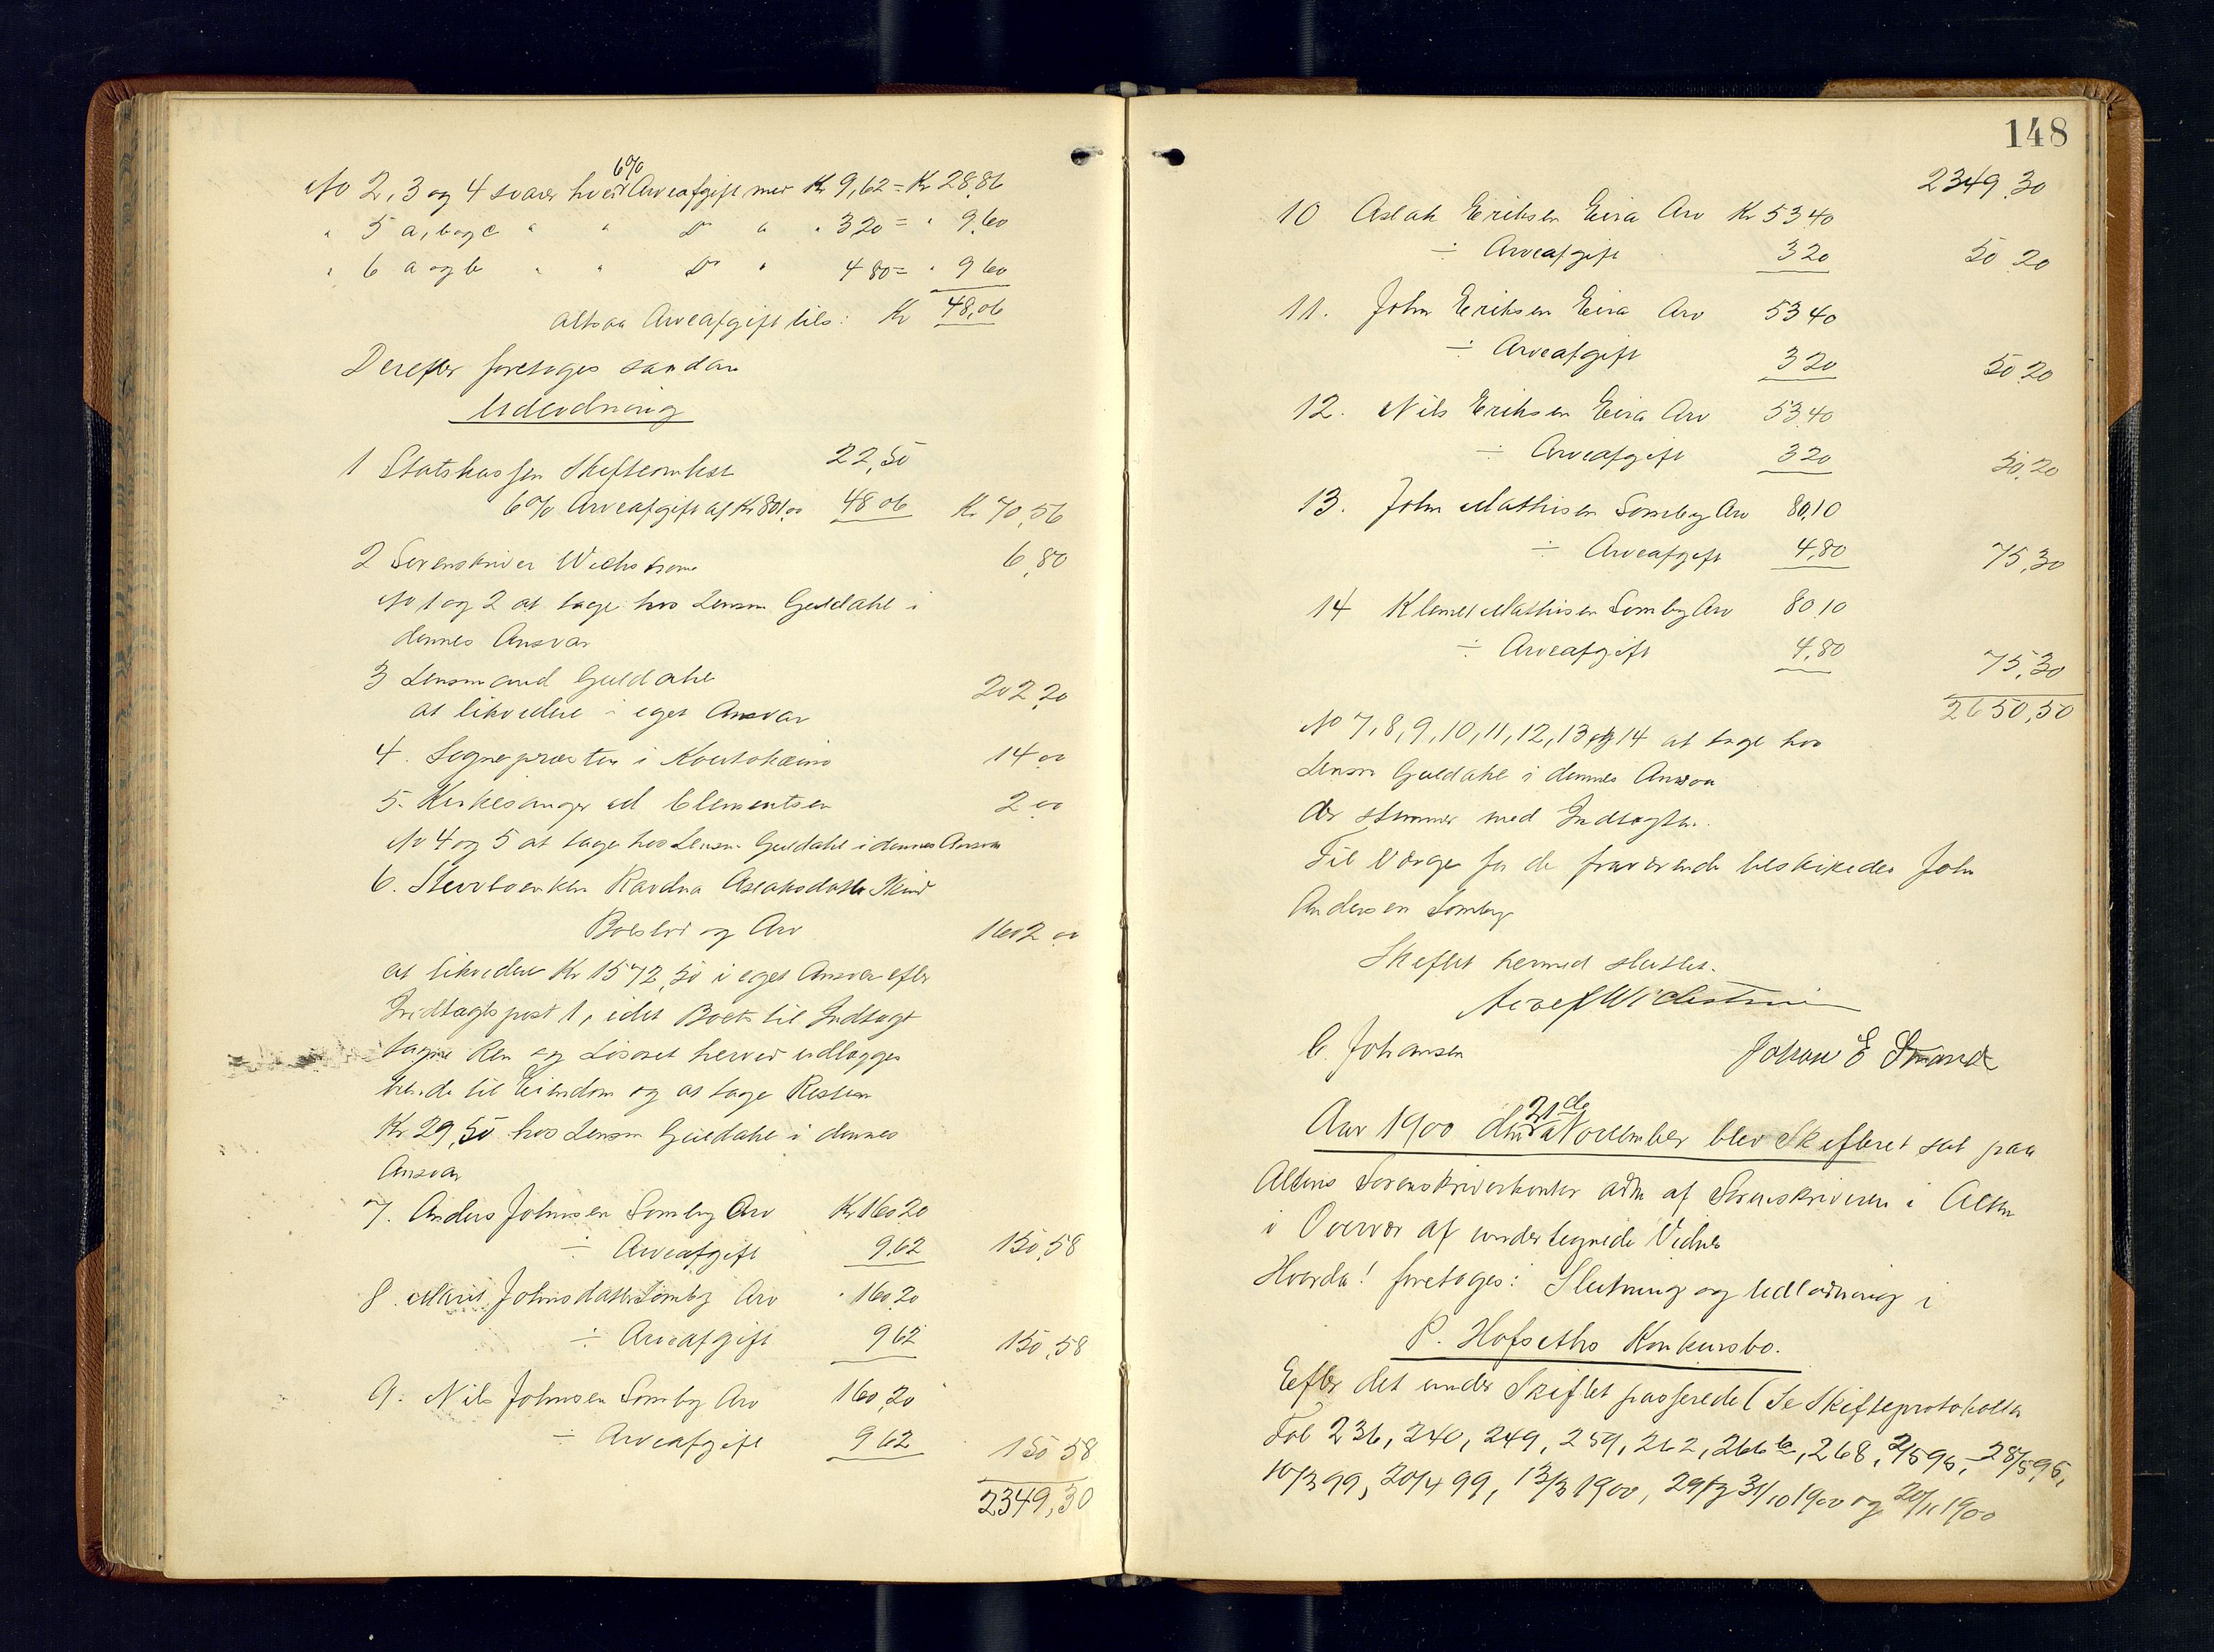 No 2, 3 og 4 svarer hver 6% Arveafgift med Kr 9,62 = Kr 28.86
" 5 a, b og c " " Do " " 3 20 = " 9.60
" 6 a og b " " Do " 4 80 = " 9 60
altsaa Arveafgift tils: Kr 48,06
Derefter foretoges saadan
Udlodning
1 Statskassen Skifteomkost 22,50
6% Arveafgift af Kr 801.00 48 06 Kr 70,56
2 Sorenskriver Wichstrøm 6,80
No 1 og 2 at tage hos Lensm Guldahl i
dennes Ansvar
3 Lensmand Guldahl 202,20
at likvidere i eget Ansvar
4. Sognepræsten i Koutokæino 14 00
5. Kirkesanger ed Clementsen 2 00
No 4 og 5 at tage hos Lensm Guldahl i dennes Ansvar
6. Stervboenken Ravdna Aslaksdatter Skind
Boeslod og Arv 1602 00
at likvidere Kr 1572,50 i eget Ansvar efter
Indtægtspost 1, idet Boets til Indtægt
tagne Ren og Løsøret herved udlægges
hende til Eiendom og at tage Resten
Kr 29,50 hos Lensm Guldahl i dennes
Ansvar
7. Anders Johnsen Somby Arv Kr 160 20
÷ Arveafgift 9.62 150,58
8. Marit Johnsdatter Somby Arv " 160 20
÷ Arveafgift 9 62 150,58
9. Nils Johnsen Somby Arv 160,20
÷ Arveafgift 9 62 150 58
2349,30
148
2349,30
10 Aslak Eriksen Eira Arv Kr 53 40
÷ Arveafgift 3 20 50 20
11. John Eriksen Eira Arv 53 40
÷ Arveafgift 3 20 50.20
12. Nils Eriksen Eira Arv 53.40
÷ Arveafgift 3 20 50,20
13. John Mathisen Somby Arv 80,10
÷ Arveafgift 4,80 75,30
14 Klemet Mathisen Somby Arv 80 10
÷ Arveafgift 4,80 75,30
2650,50
No 7, 8, 9, 10, 11, 12, 13 og 14 at tage hos
Lensm Guldahl i dennes Ansvar
der stemmer med Indtægten.
Til Værge for de fraværende beskikedes John
Andersen Somby
Skiftet hermed sluttet.
Wichstrøm
C. Johansen Johan E
Aar 1900 den 21de November blev Skifteret sat paa
Altens Sorenskriverkontor adm af Sorenskriveren i Alten
i Overvær af undertegnede Vidner
Hvorda! foretoges: Slutning og Udlodning i
P. Hofseths Konkursbo.
Efter det under Skiftet passerede (Se Skifteprotokollen
Fol 236, 240, 249, 259, 262, 266 b, 268, 2/5 95, 28/5 95,
10/3 99, 20/4 99, 13/3 1900, 29/9 31/10 1900 og 20/11 1900